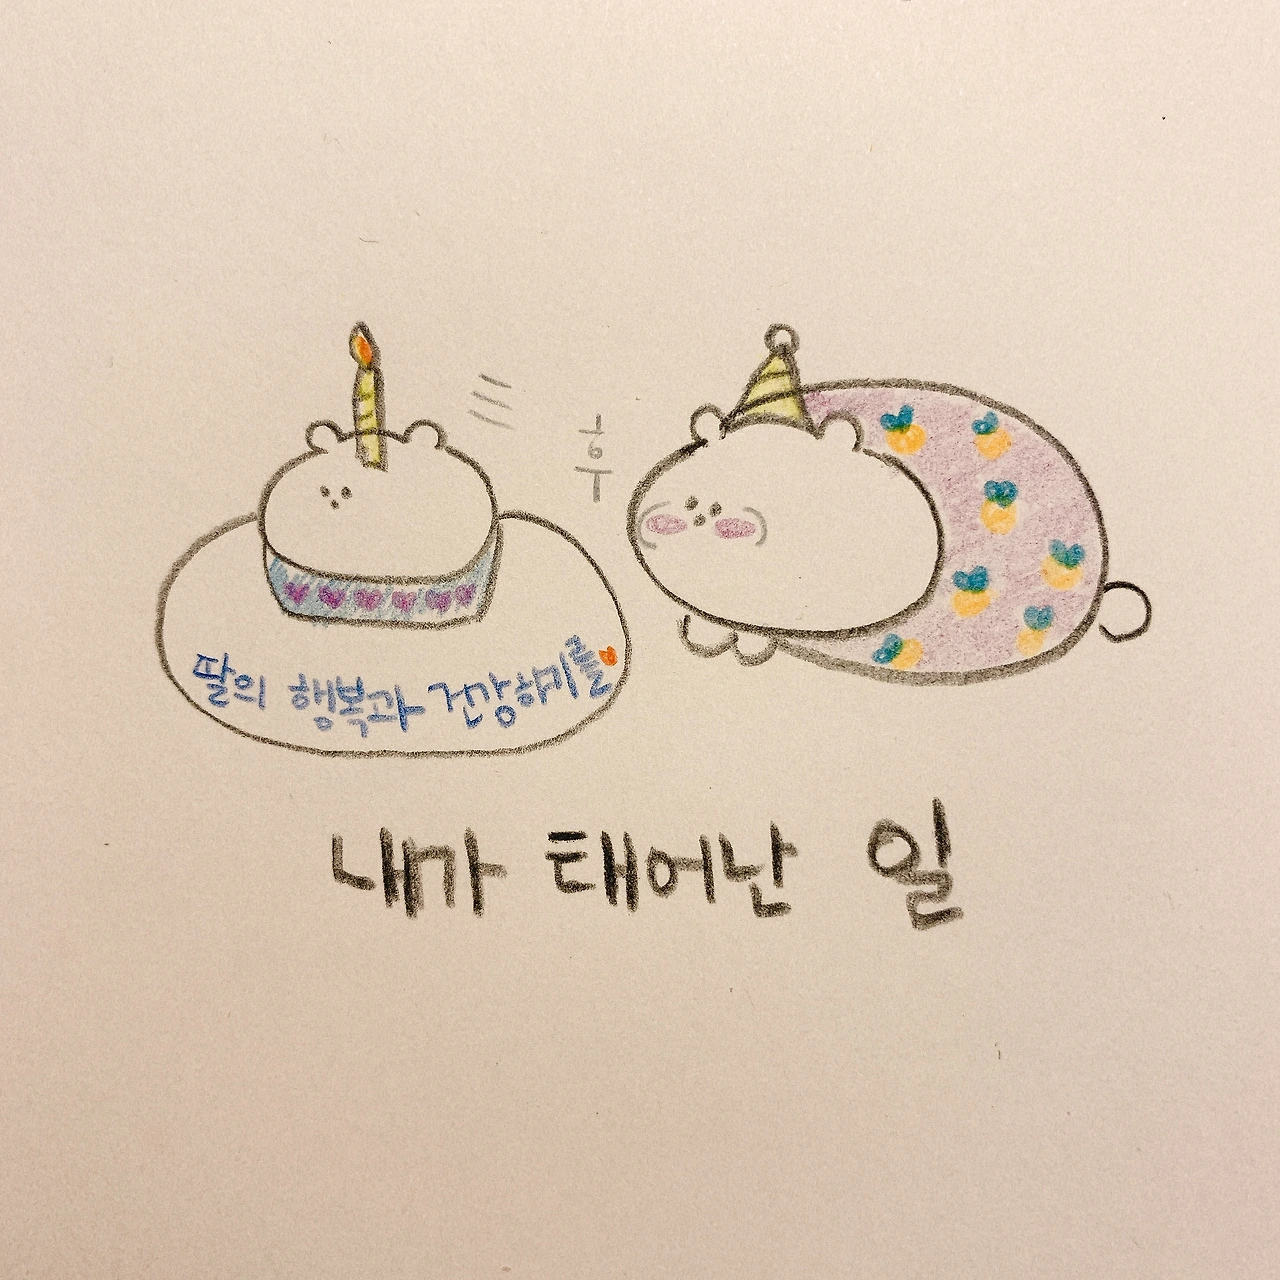 후
팔의 행복과 건강하기를
내가 태어난 일